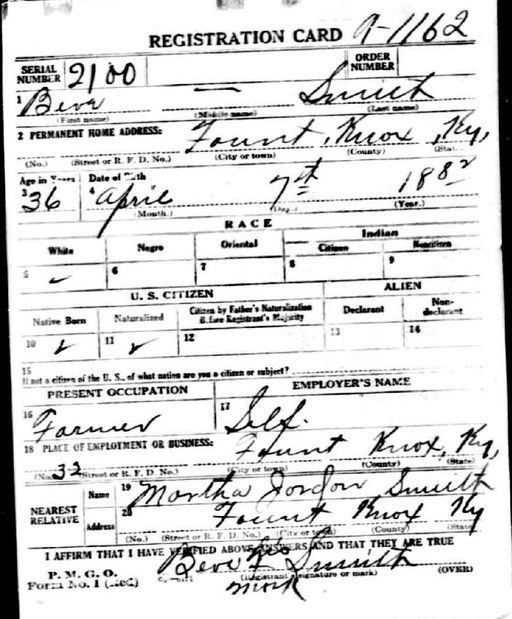 REGISTRATION CARD 9-1162
SERIAL NUMBER 2100 ORDER NUMBER
1 Beve — Smith
(First name) (Middle name) (Last name)
2 PERMANENT HOME ADDRESS: Fount, Knox, Ky,
(No.) (Street or R. F. D. No.) (City or town) (County) (State)
Age in Years Date of Birth
3 36 4 April 7th 1882
(Month.) (Day.) (Year.)
RACE
White Negro Oriental Indian
Citizen Noncitizen
5 ✓ 6 7 8 9
U. S. CITIZEN ALIEN
Native Born Naturalized Citizen by Father's Naturalization Before Registrant's Majority Declarant Non-declarant
10 ✓ 11 ✓ 12 13 14
15
If not a citizen of the U. S., of what nation are you a citizen or subject?
PRESENT OCCUPATION EMPLOYER'S NAME
16 Farmer 17 Self.
18 PLACE OF EMPLOYMENT OR BUSINESS: Fount Knox, Ky,
(No.) 32 (Street or R. F. D. No.) (City or town) (County) (State)
NEAREST RELATIVE Name 19 Martha Jordon Smith
Address 20 Fount Knox Ky
(No.) (Street or R. F. D. No.) (City or town) (County) (State)
I AFFIRM THAT I HAVE VERIFIED ABOVE ANSWERS AND THAT THEY ARE TRUE
P. M. G. O.
Form No. 1 (Red) Beve his X Smith
(Registrant's signature or mark) (OVER)
mark